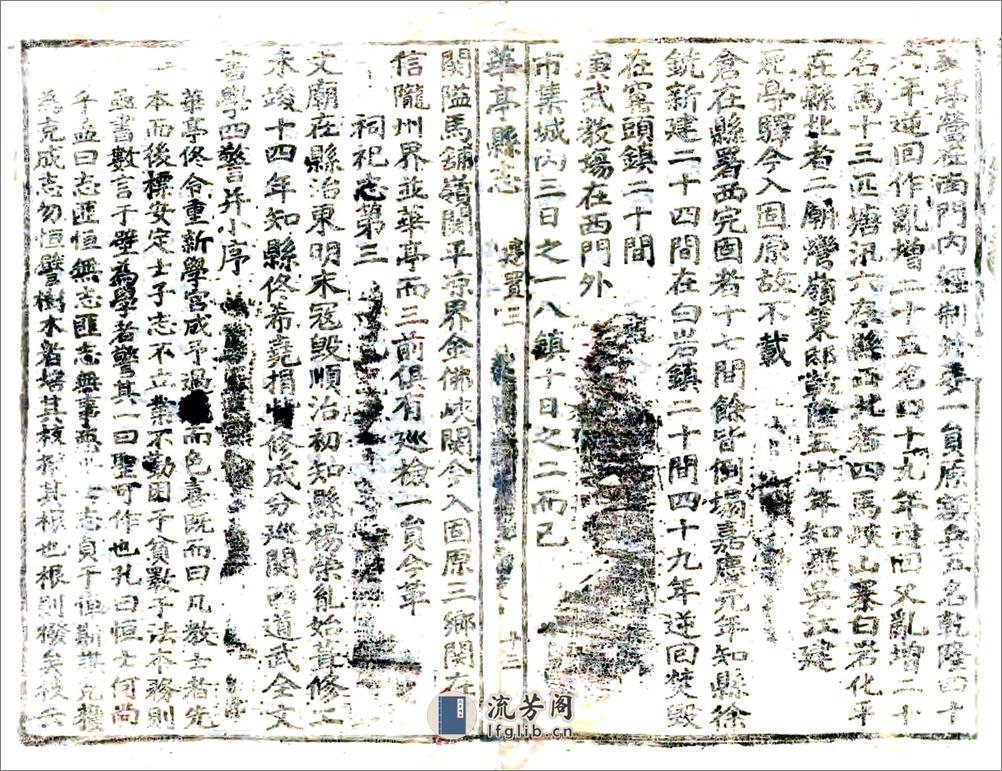 亭營在南門內經制外委一員原額兵五名乾隆四十
六年逆回作亂增二十五名四十九年逆回又亂增二十
名馬十三匹塘汛六在縣西北者四馬峽山寨白岩化平
在縣北者二廟灣嶺策邸乾隆五十年知縣吳江建
亭驛今入固原故不載
倉在縣署西完固者十七間餘皆倒塌嘉慶元年知縣徐
銑新建二十四間在白岩鎮二十間四十九年逆回焚毀
在窰頭鎮二十間
演武教場在西門外
市集城內三日之一八鎮十日之二而已
華亭縣志 建置二 十二
關隘馬鋪嶺關平凉界金佛峽關今入固原三鄉關在
信隴州界並華亭而三前俱有巡檢一員今革
祠祀志第三
文廟在縣治東明末寇毀順治初知縣楊榮胤始葺修二
未竣十四年知縣佟希堯捐貲修成分巡關西道武全文
書學四警并小序
華亭佟令重新學宮成予過而色喜既而曰凡教士者先
本而後標安定士子志不立業不勤困于貧數子法本務則
亟書數言于壁為學者警其一曰聖可作也孔曰恒士何尚
千孟曰志匪恒無志匪志無事志貞于恒斯無
為克成志勿恒譬樹木者培其枝棄其根也根則撥矣枝
流芳阁
lfglib.cn